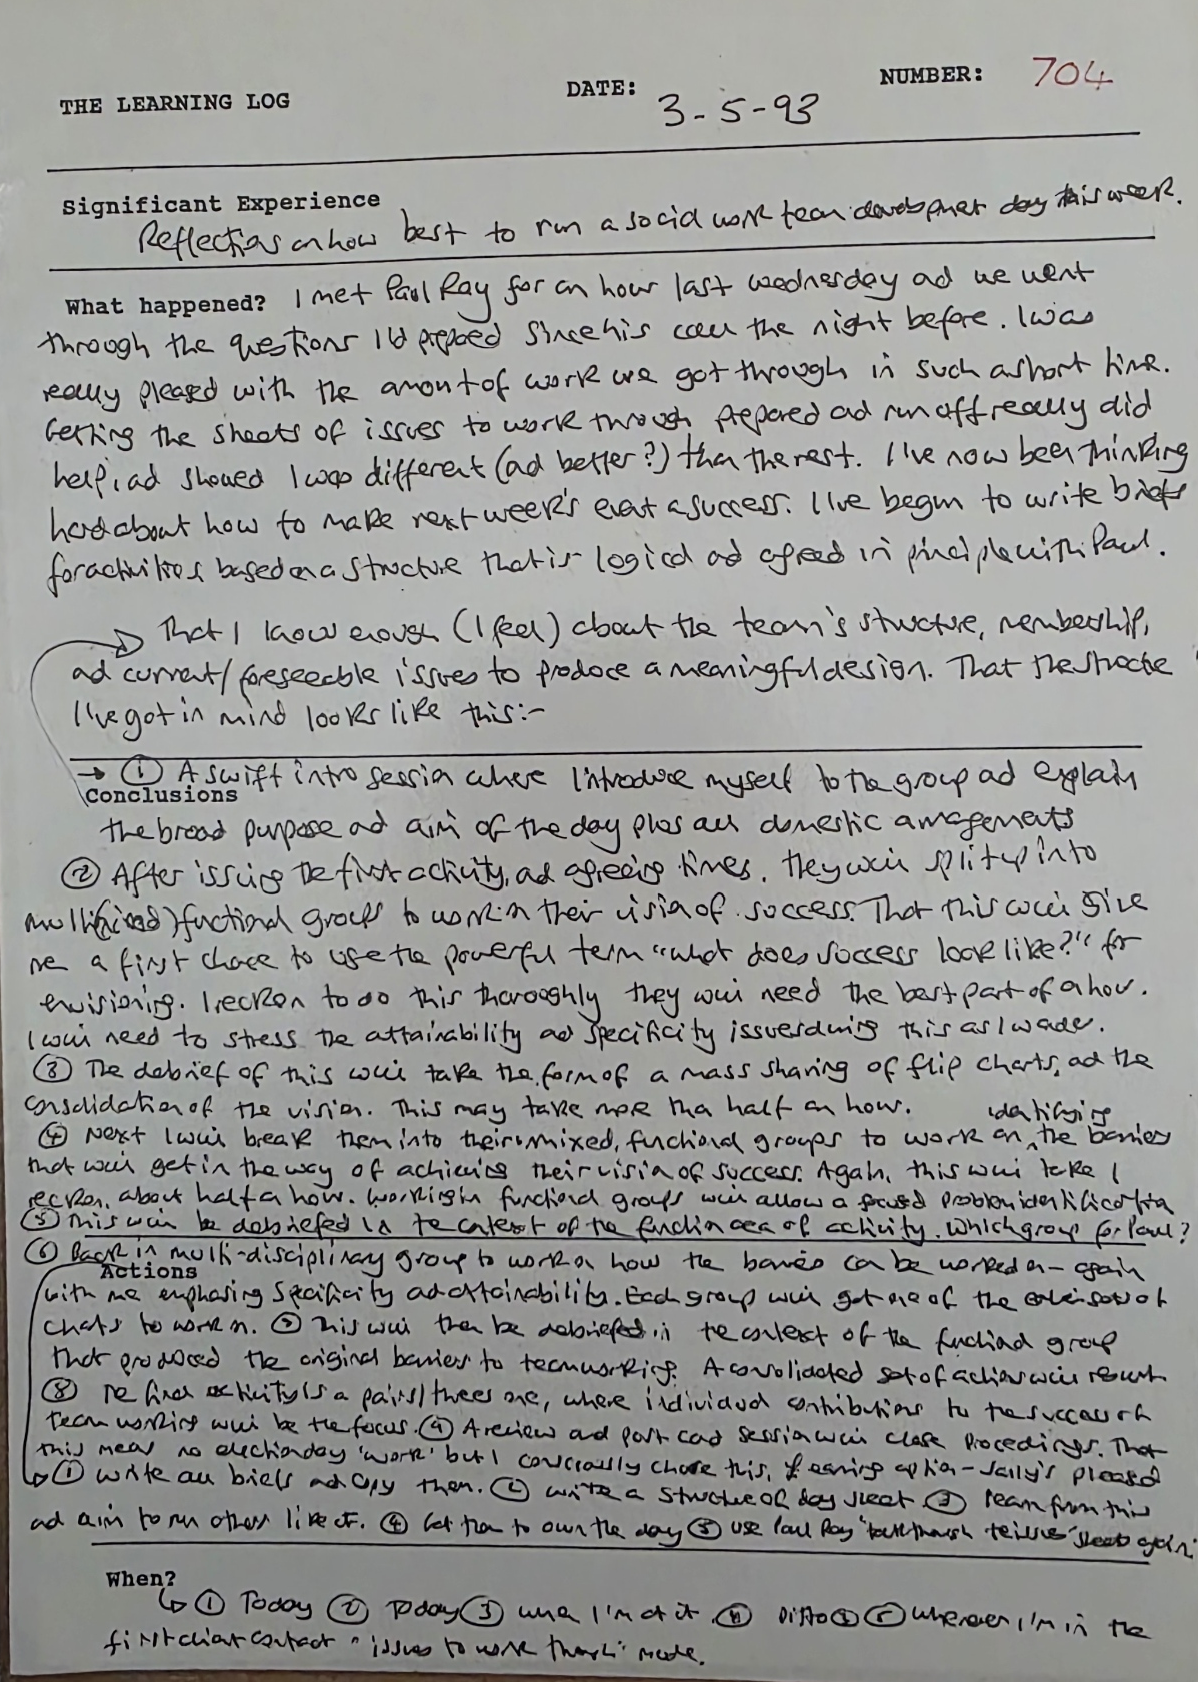 THE LEARNING LOG DATE: 3-5-93 NUMBER: 704
Significant Experience
Reflections on how best to run a social work team development day this week.
What happened? I met Paul Ray for an hour last Wednesday ad we went
through the questions I'd prepared since his call the night before. I was
really pleased with the amount of work we got through in such a short time.
Getting the sheets of issues to work through prepared ad run off really did
help, ad showed I was different (ad better?) than the rest. I've now been thinking
hard about how to make next week's event a success. I've begun to write briefs
for activities based on a structure that is logical ad agreed in principle with Paul.
That I know enough (I feel) about the team's structure, membership,
ad current/foreseeable issues to produce a meaningful design. That the structure
I've got in mind looks like this:-
→ ① A swift intro session where I introduce myself to the group ad explain
Conclusions
the broad purpose ad aim of the day plus all domestic arrangements
② After issuing the first activity, ad agreeing times, they will split up into
multi(mixed) functional groups to work on their vision of success. That this will give
me a first chance to use the powerful term "what does success look like?" for
envisioning. I reckon to do this thoroughly they will need the best part of an hour.
I will need to stress the attainability ad specificity issues during this as I wander.
③ The debrief of this will take the form of a mass sharing of flip charts, ad the
consolidation of the vision. This may take more than half an hour.
④ Next I will break them into their unmixed, functional groups to work on identifying the barriers
that will get in the way of achieving their vision of success. Again, this will take I
reckon, about half an hour. Working in functional groups will allow a focused problem identification
⑤ This will be debriefed in the context of the function area of activity. Which group for Paul?
⑥ Back in multi-disciplinary group to work on how the barriers can be worked on - again
Actions
with me emphasing specificity ad attainability. Each group will get one of the earlier sets of
charts to work on. ⑦ This will then be debriefed in the context of the functional group
that produced the original barriers to teamworking. A consolidated set of actions will result
⑧ The final activity is a pairs/threes one, where individual contributions to the success of
team working will be the focus. ⑨ A review and post card session will close procedings. That
this means no election day 'work' but I consciously chose this, - Sally's pleased
① Write all briefs ad copy them. ② Write a structure of day sheet ③ Learn from this
ad aim to run others like it. ④ Get them to own the day ⑤ Use Paul Ray "talk through the issues" sheets again.
When?
① Today ② Today ③ when I'm at it ④ Ditto ③ ⑤ Whenever I'm in the
first client contact "issues to work through" mode.